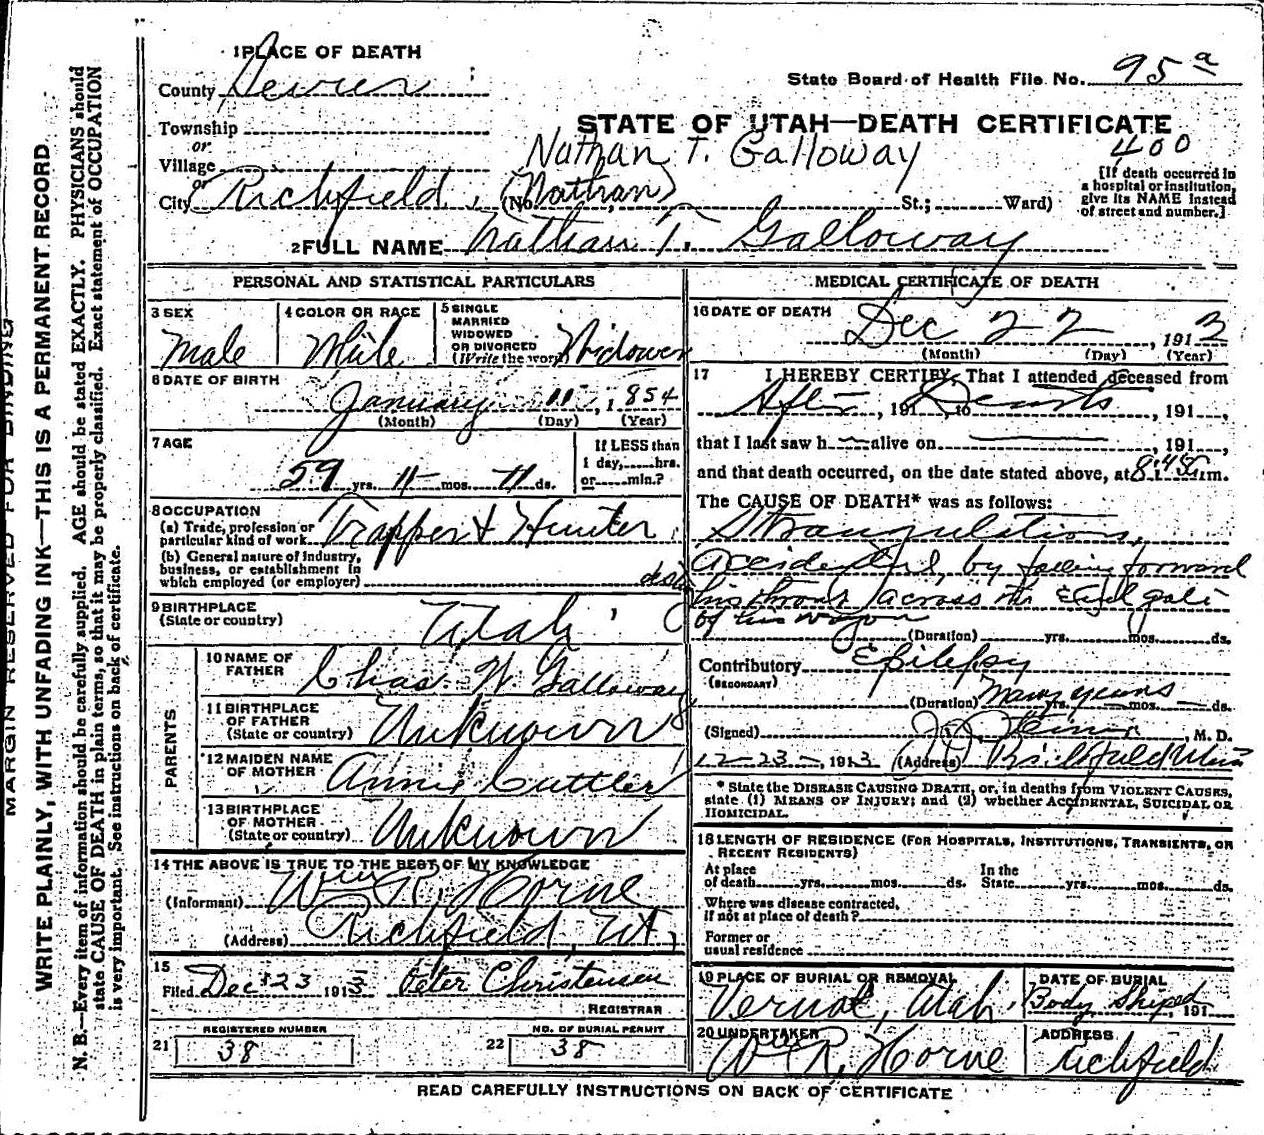 MARGIN RESERVED FOR BINDING
WRITE PLAINLY, WITH UNFADING INK—THIS IS A PERMANENT RECORD.
N. B.—Every item of information should be carefully supplied. AGE should be stated EXACTLY. PHYSICIANS should
state CAUSE OF DEATH in plain terms, so that it may be properly classified. Exact statement of OCCUPATION
is very important. See instructions on back of certificate.
1 PLACE OF DEATH
County Sevier
State Board of Health File No. 95 a
Township
or
Village
or
City Richfield, (No. St.; Ward)
STATE OF UTAH—DEATH CERTIFICATE
400
Nathan T. Galloway
(Nathan)
[If death occurred in
a hospital or institution,
give its NAME instead
of street and number.]
2 FULL NAME Nathan T. Galloway
PERSONAL AND STATISTICAL PARTICULARS
3 SEX
Male
4 COLOR OR RACE
White
5 SINGLE
MARRIED
WIDOWED
OR DIVORCED
(Write the word) Widower
6 DATE OF BIRTH
January 11, 1854
(Month) (Day) (Year)
7 AGE
59 yrs. 11 mos. 11 ds.
If LESS than
1 day, hrs.
or min.?
8 OCCUPATION
(a) Trade, profession or
particular kind of work Trapper & Hunter
(b) General nature of industry,
business, or establishment in
which employed (or employer)
9 BIRTHPLACE
(State or country) Utah
PARENTS
10 NAME OF
FATHER Chas. W. Galloway
11 BIRTHPLACE
OF FATHER
(State or country) Unknown
12 MAIDEN NAME
OF MOTHER Annie Cuttler
13 BIRTHPLACE
OF MOTHER
(State or country) Unknown
14 THE ABOVE IS TRUE TO THE BEST OF MY KNOWLEDGE
(Informant) Wm R. Horne
(Address) Richfield, Ut.
15
Filed Dec 23 1913 Peter Christensen
REGISTRAR
REGISTERED NUMBER
21 38
NO. OF BURIAL PERMIT
22 38
MEDICAL CERTIFICATE OF DEATH
16 DATE OF DEATH
Dec 22, 1913
(Month) (Day) (Year)
17 I HEREBY CERTIFY, That I attended deceased from
After, 191 to Death, 191
that I last saw h alive on , 191
and that death occurred, on the date stated above, at 8:45 m.
The CAUSE OF DEATH* was as follows:
Strangulation,
Accidental, by falling forward
his throat across the End gate
of his wagon
(Duration) yrs. mos. ds.
Contributory Epilepsy
(SECONDARY)
(Duration) Many years yrs. mos. ds.
(Signed) , M. D.
12-23-, 1913 (Address) Richfield
* State the DISEASE CAUSING DEATH, or, in deaths from VIOLENT CAUSES,
state (1) MEANS OF INJURY; and (2) whether ACCIDENTAL, SUICIDAL OR
HOMICIDAL.
18 LENGTH OF RESIDENCE (FOR HOSPITALS, INSTITUTIONS, TRANSIENTS, OR
RECENT RESIDENTS)
At place
of death yrs. mos. ds.
In the
State yrs. mos. ds.
Where was disease contracted,
if not at place of death?
Former or
usual residence
19 PLACE OF BURIAL OR REMOVAL
Vernal, Utah.
DATE OF BURIAL
Body Shiped, 191
20 UNDERTAKER
Wm R. Horne
ADDRESS
Richfield
READ CAREFULLY INSTRUCTIONS ON BACK OF CERTIFICATE